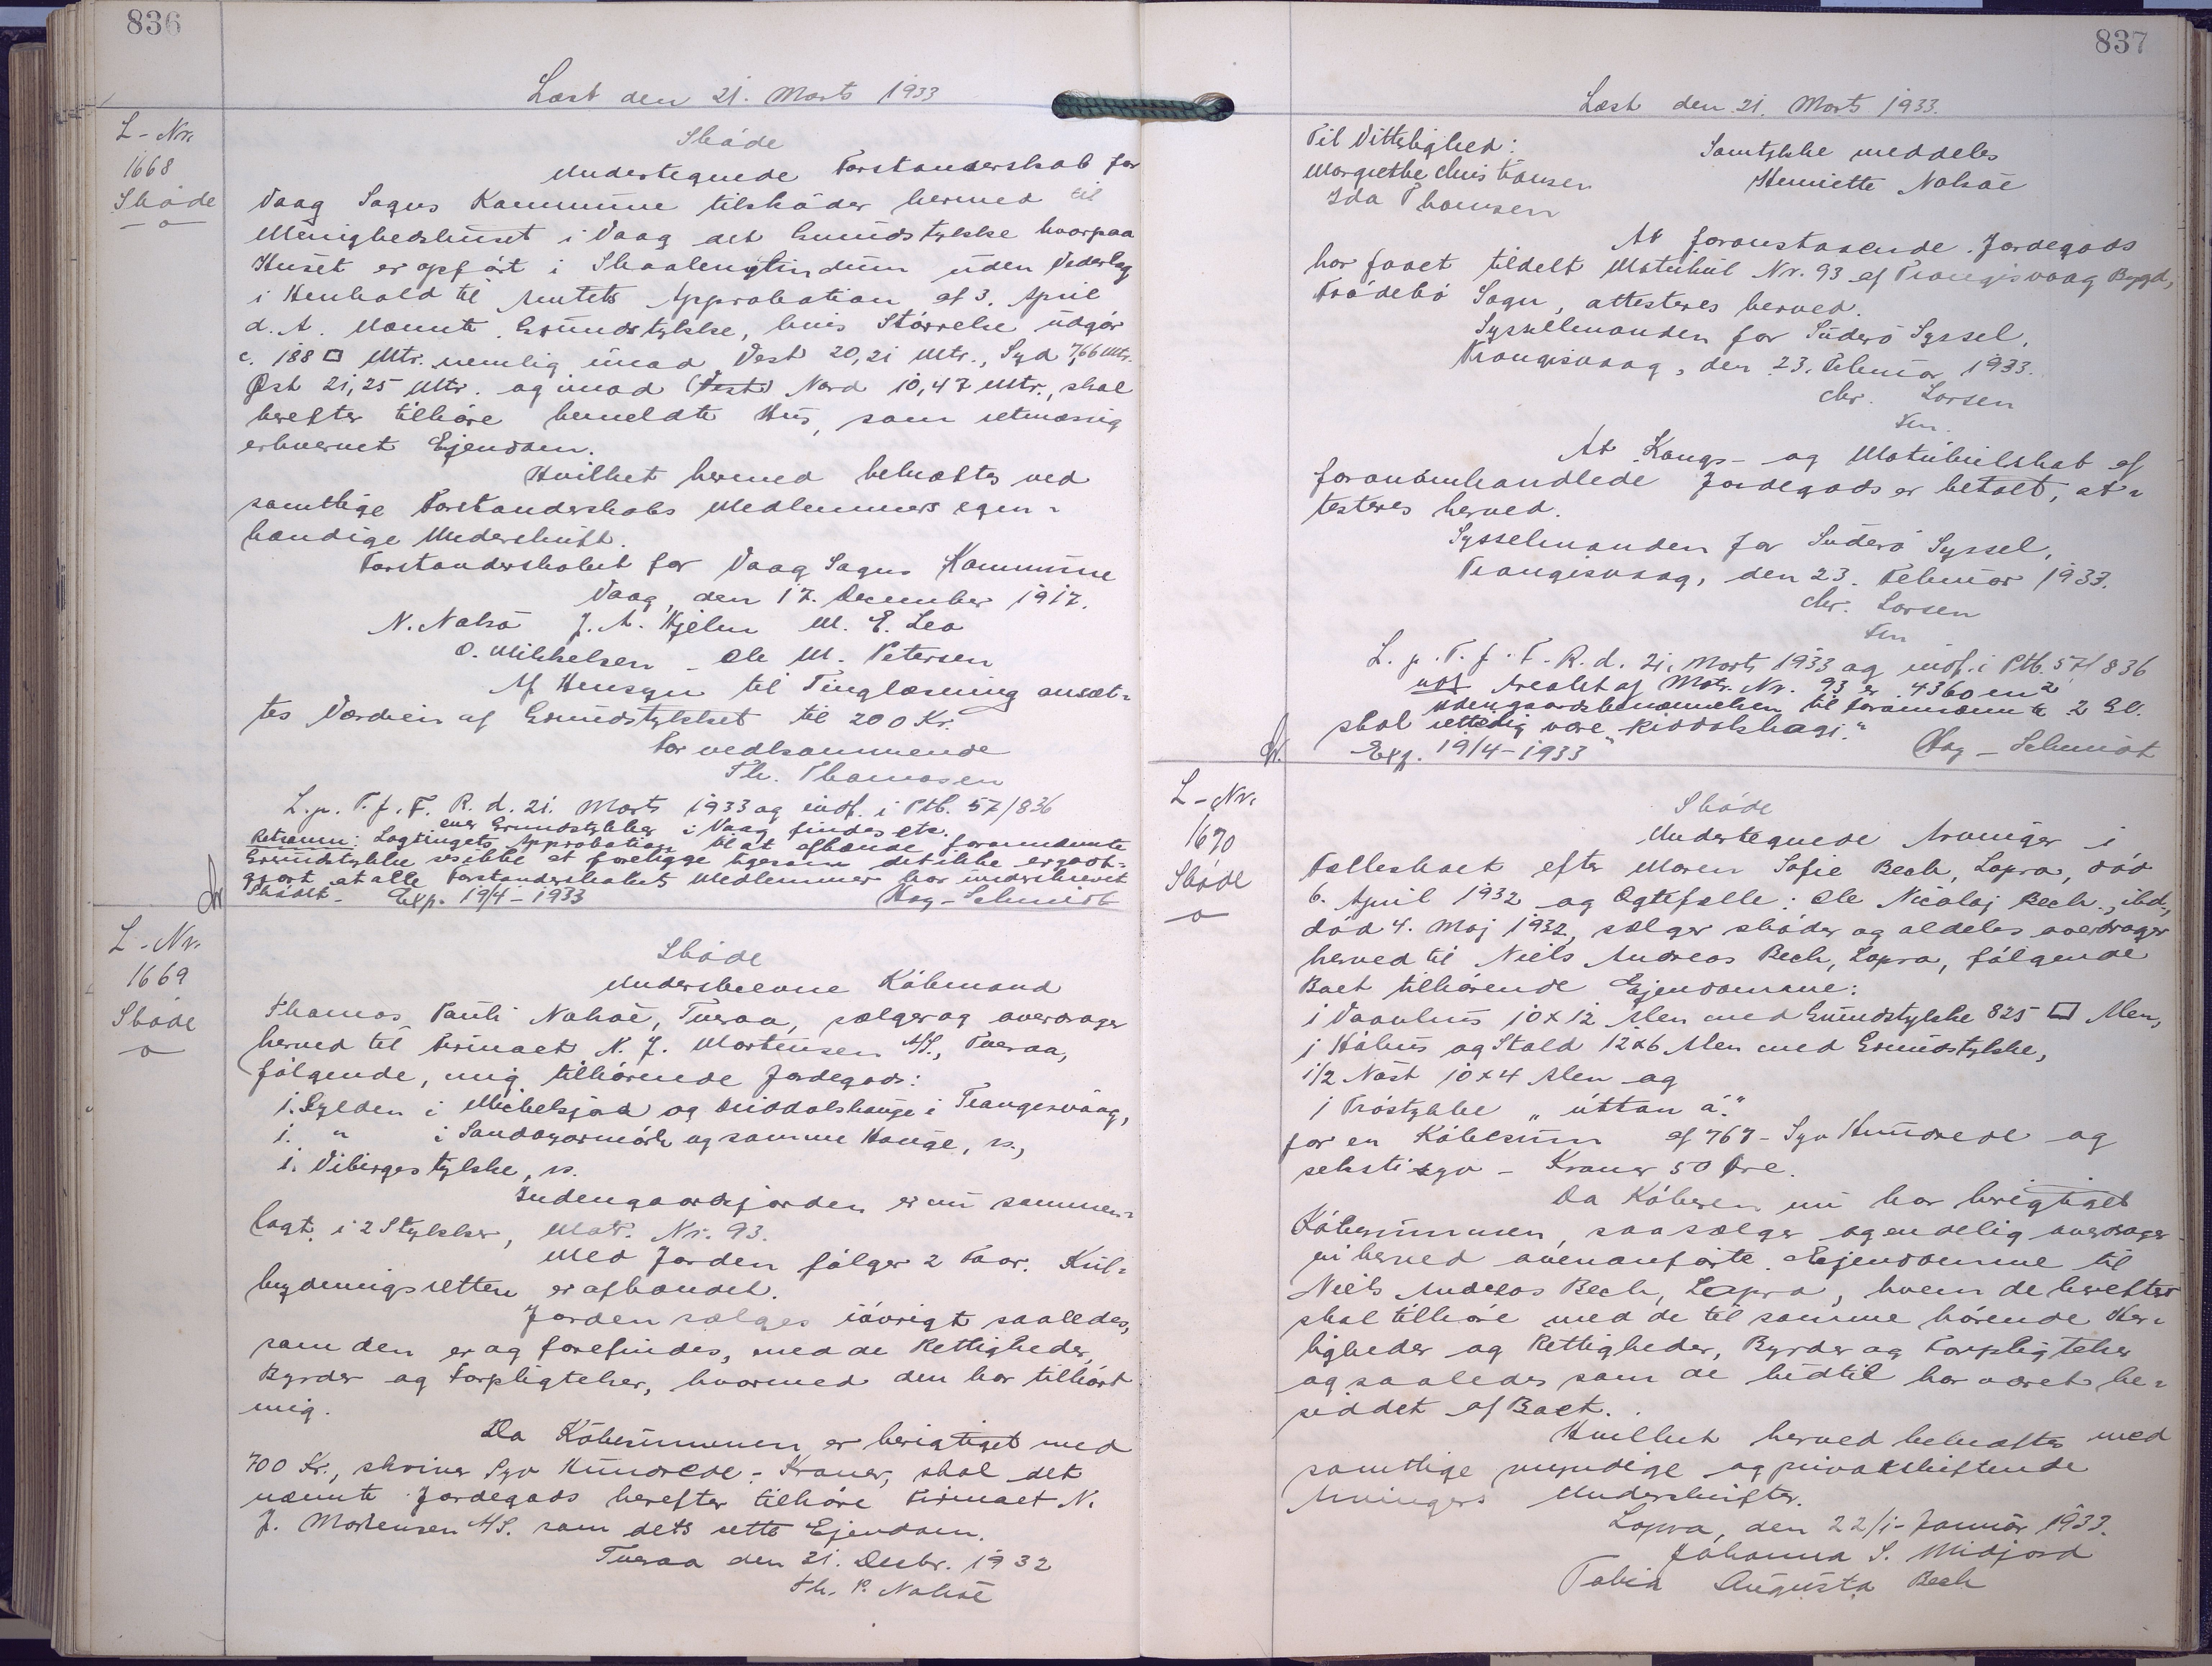 836
Læst den 21. Marts 1933
L-Nr.
1668
Skøde
Skøde
Undertegnede Forstanderskab for
Vaag Sogns Kommune tilskøder hermed til
Menighedshuset i Vaag det Grundstykke hvorpaa
Huset er opført i Skaalenglindum uden Vederlag
i Henhold til Amtets Approbation af 3. April
d. A. Nævnte Grundstykke, hvis Størrelse udgør
c. 188 □ Mtr. nemlig imod Vest 20,21 Mtr., Syd 7,66 Mtr.
Øst 21,25 Mtr. og imod (Vest) Nord 10,47 Mtr., skal
herefter tilhøre bemeldte Hus, som retmæssig
erhvervet Ejendom.
Hvilket hermed bekræftes ved
samtlige Forstanderskabs Medlemmers egen-
hændige Underskrift.
Forstanderskabet for Vaag Sogns Kommune
Vaag, den 17. December 1917.
N. Nolsø J. A. Kjelm M. E. Leo
O. Mikkelsen - Ole M. Petersen
Af Hensyn til Tinglæsning ansæt-
tes Værdien af Grundstykket til 200 Kr.
For vedkommende
Th. Thomasen
L. p. T. f. F. R. d. 21. Marts 1933 og indf. i Ptb. 57/836
over Grundstykker i Vaag findes etc.
Retsanm: Lagtingets Approbation til at afhænde forannævnte
Grundstykke ses ikke at foreligge ligesom det ikke er godt-
gjort at alle Forstanderskabets Medlemmer har underskrevet
Skødet. Exp. 19/4 - 1933 Hag-Schmidt
L-Nr.
1669
Skøde
Skøde
Underskrevne Købmand
Thomas Pauli Nolsøe, Tveraa, sælger og overdrager
herved til Firmaet N. J. Mortensen A/S., Tveraa,
følgende, mig tilhørende Jordegods:
1. Gylden i Mikkelsjørd og Kriddalshauge i Trangisvaag,
1. " i Sandagarmørk og samme Hauge, ss.,
1. Vibirgestykke, ss.
Indengaardsjorden er nu sammen-
lagt i 2 Stykker, Matr. Nr. 93.
Med Jorden følger 2 Faar. Kul-
brydningsretten er afhændet.
Jorden sælges iøvrigt saaledes,
som den er og forefindes, med de Rettigheder,
Byrder og Forpligtelser, hvormed den har tilhørt
mig.
Da Købesummen er berigtiget med
700 Kr., skriver Syv Hundrede - Kroner, skal det
nævnte Jordegods herefter tilhøre Firmaet N.
J. Mortensen A/S. som dets rette Ejendom.
Tveraa den 21. Decbr. 1932
Th. P. Nolsøe
837
Læst den 21. Marts 1933.
Til Vitterlighed: Samtykke meddeles
Margrethe Christiansen Henriette Nolsøe
Ida Thomsen
At foranstaaende Jordegods
har faaet tildelt Matrikul Nr. 93 af Trangisvaag Bygd,
Frødebø Sogn, attesteres herved.
Sysselmanden for Suderø Syssel,
Trangisvaag, den 23. Februar 1933.
Chr. Larsen
Fm.
At Kongs- og Matrikulskat af
foranomhandlede Jordegods er betalt, at-
testeres herved.
Sysselmanden for Suderø Syssel,
Trangisvaag, den 23. Februar 1933.
Chr. Larsen
Fm
L. p. T. f. F. R. d. 21. Marts 1933 og indf. i Ptb. 57/836
Arealet af Matr. Nr. 93 er 4360 m²
Udengaardsbenævnelsen til forannævnte 2 Gl.
skal rettelig være "Kiddalshagi."
Exp. 19/4-1933 Hag-Schmidt
L-Nr.
1670
Skøde
Skøde
Undertegnede Arvinger i
Fællesboet efter Maren Sofie Bech, Lopra, død
6. April 1932 og Ægtefælle: Ole Nicolaj Bech., ibd.,
død 4. Maj 1932, sælger skøder og aldeles overdrager
herved til Niels Andreas Bech, Lopra, følgende
Boet tilhørende Ejendomme:
1 Vaanhus 10 x 12 Alen med Grundstykke 825 □ Alen,
1 Høhus og Stald 12x6 Alen med Grundstykke,
1/2 Nøst 10 x 4 Alen og
1 Trøstykke "úttan á".
for en Købesum af 767 - Syv Hundrede og
sekstisyv - Kroner 50 Øre.
Da Køberen nu har berigtiget
Købesummen, saa sælger og endelig overdrager
vi herved ovenanførte Ejendomme til
Niels Andreas Bech, Lopra, hvem de herefter
skal tilhøre med de til samme hørende Her-
ligheder og Rettigheder, Byrder og Forpligtelser
og saaledes som de hidtil har været be-
siddet af Boet.
Hvilket herved bekræftes med
samtlige myndige og privatskiftende
Arvingers Underskrifter.
Lopra, den 22/1 - Januar 1933.
Jóhanna S. Midjord
Tabia Augusta Bech